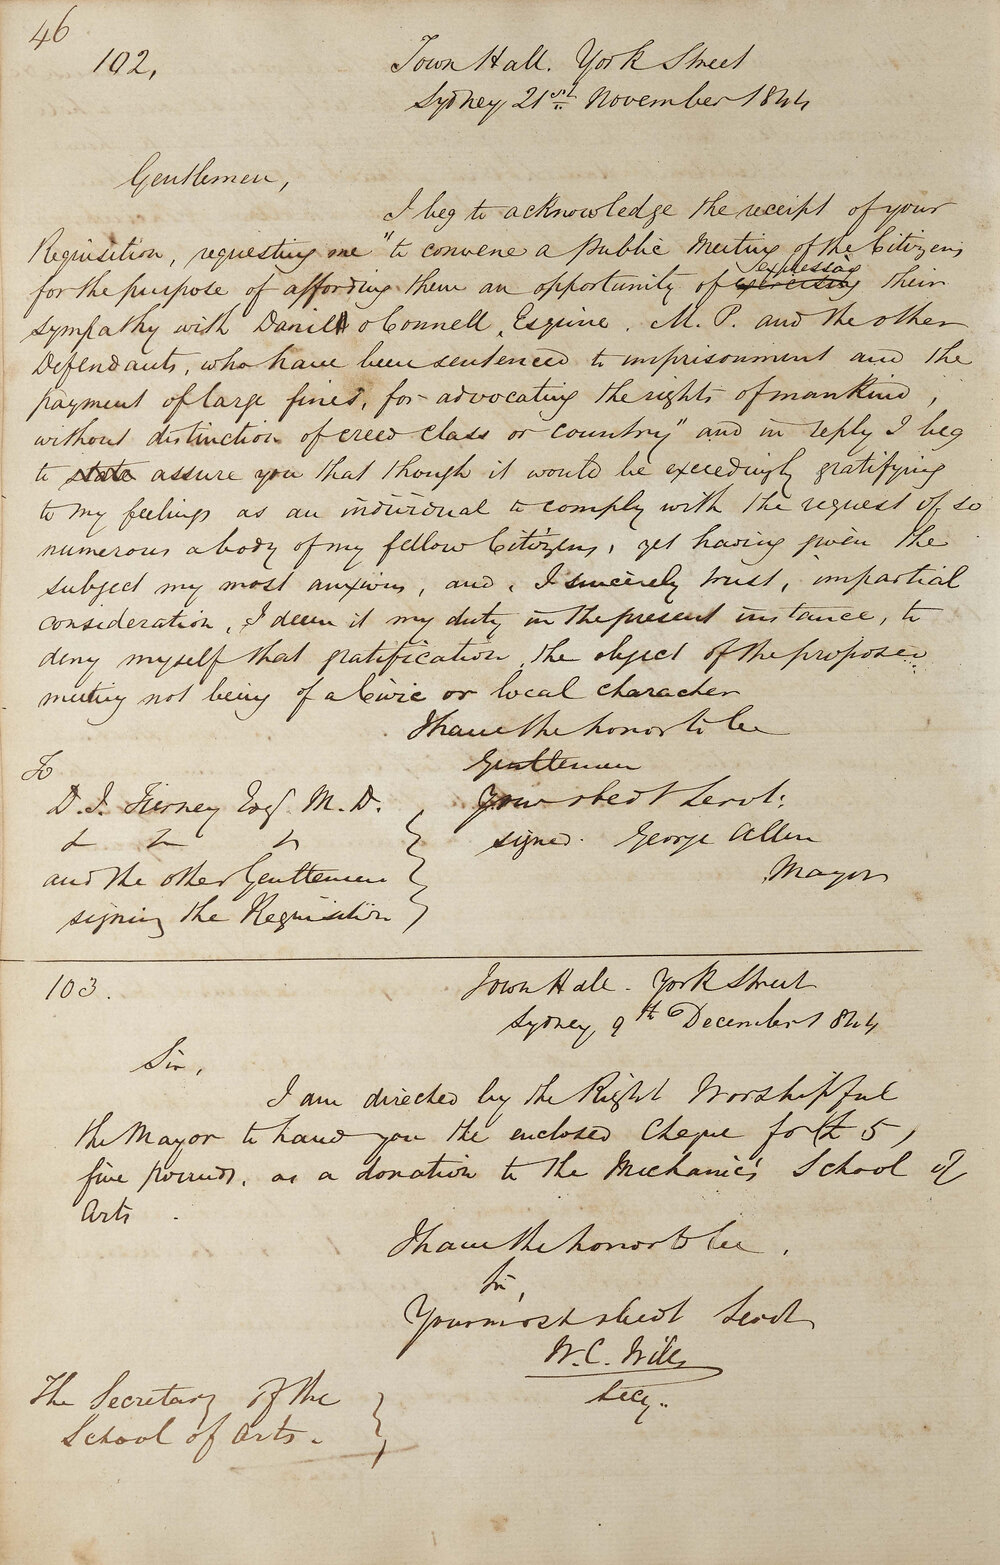 46
102,
Town Hall. York Street
Sydney 21st November 1844
Gentlemen,
I beg to acknowledge the receipt of your
Requisition, requesting me "to convene a public Meeting of the Citizens
for the purpose of affording them an opportunity of exercising expressing their
sympathy with Daniel O Connell, Esquire. M. P. and the other
Defendants, who have been sentenced to imprisonment and the
payment of large fines, for advocating the rights of mankind,
without distinction of creed class or country" and in reply I beg
to state assure you that though it would be exceedingly gratifying
to my feelings as an individual to comply with the request of so
numerous a body of my fellow Citizens, yet having given the
subject my most anxious, and, I sincerely trust, impartial
consideration, I deem it my duty in the present instance, to
deny myself that gratification, the object of the proposed
meeting not being of a Civic or local character
I have the honor to be
Gentlemen
Your obedt Servt:
signed. George Allen
Mayor
To
D. J. Tierney Esq. M. D.
and the other Gentlemen
signing the Requisition
103.
Town Hall. York Street
Sydney 9th December 1844
Sir,
I am directed by the Right Worshipful
the Mayor to hand you the enclosed Cheque for £5,
five pounds, as a donation to the Mechanic's School of
Arts.
I have the honor to be,
Sir,
Your most obedt Servt
W. C. Wills
Secy..
The Secretary of the
School of Arts.